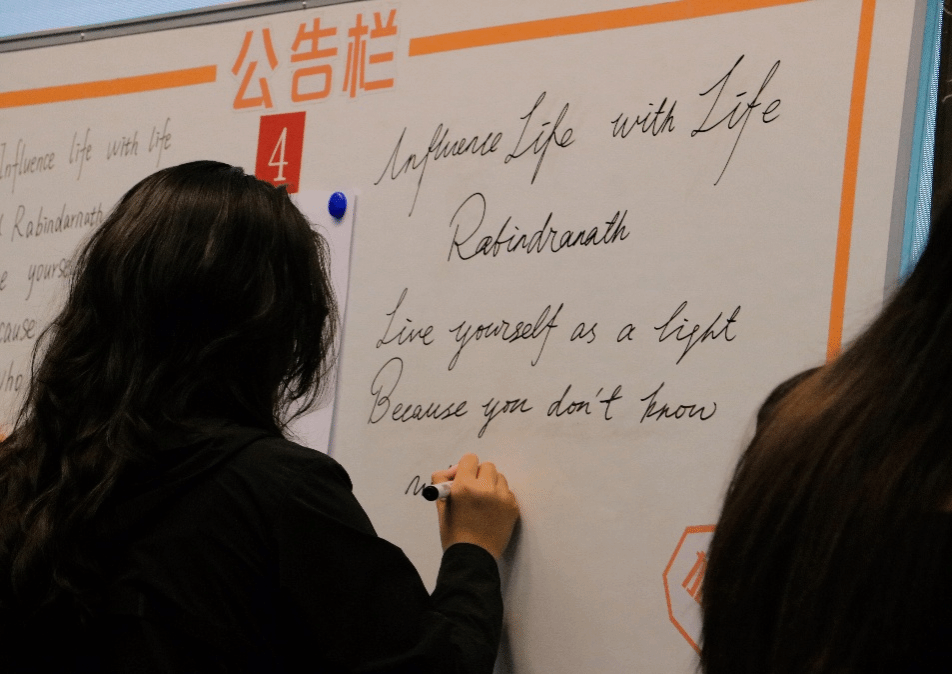 公告栏
4
Influence life with life
Rabindarnath
yourse
cause
who
Influence Life with Life
Rabindranath
Live yourself as a light
Because you don't know